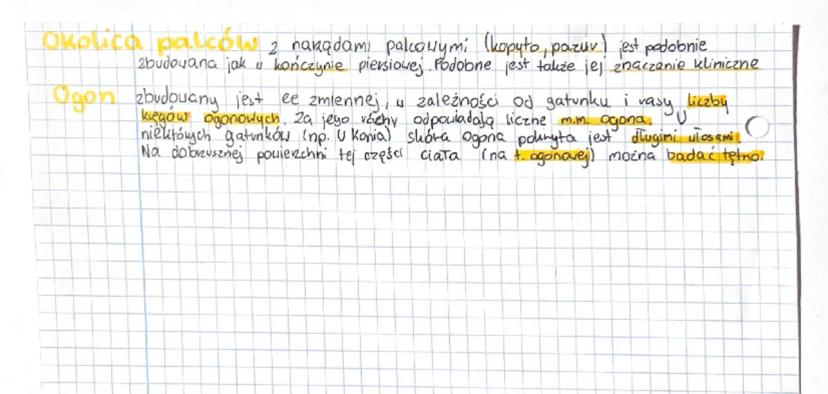 Okolica palców z narządami palcowymi (kopyto, pazur) jest podobnie
zbudowana jak w kończynie piersiowej. Podobne jest także jej znaczanie kliniczne
Ogon zbudowany jest ze zmiennej, w zależności od gatunku i rasy liczby
kręgów ogonowych. Za jego ruchy odpowiadają liczne m.m. ogona. U
niektórych gatunków (np. U Konia) skóra ogona pokryta jest długimi włosami.
Na dobrzusznej powierzchni tej części ciała (na t. ogonowej) można badać tętno.